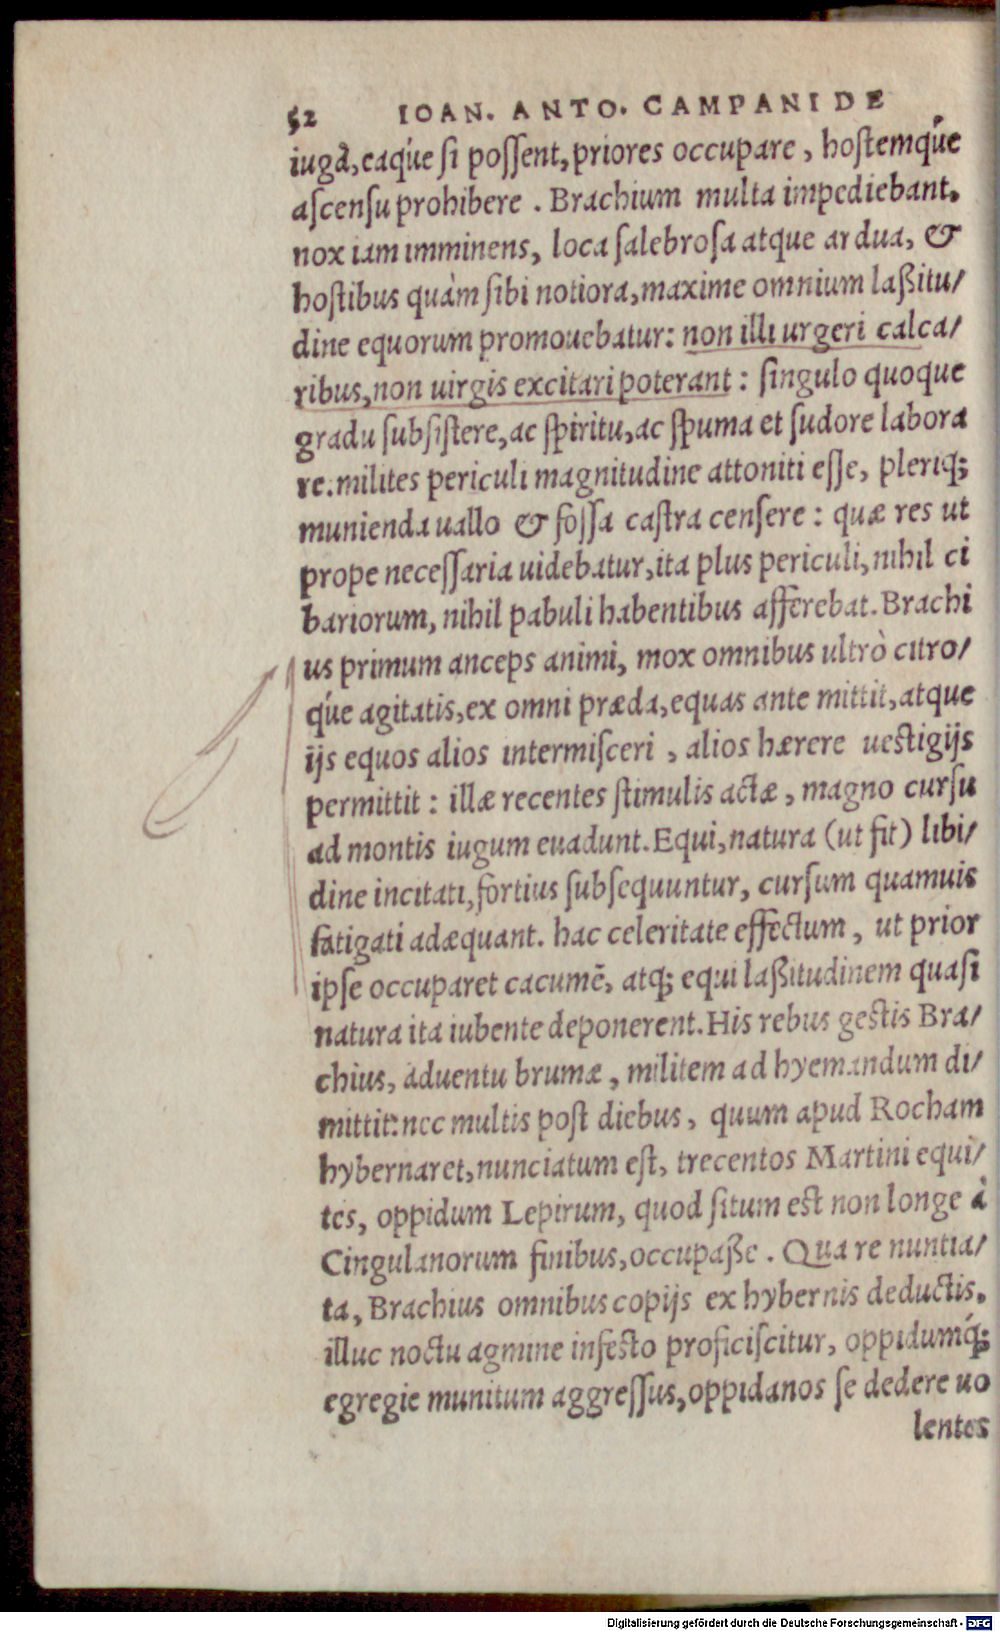 52 IOAN. ANTO. CAMPANI DE
iuga, eaq́ue si poſſent, priores occupare, hoſtemq́ue
aſcenſu prohibere. Brachium multa impediebant,
nox iam imminens, loca ſalebroſa atque ardua, &
hoſtibus quàm ſibi notiora, maxime omnium laßitu/
dine equorum promouebatur: non illi urgeri calca/
ribus, non uirgis excitari poterant: ſingulo quoque
gradu ſubſiſtere, ac ſpiritu, ac ſpuma et ſudore labora
re. milites periculi magnitudine attoniti eſſe, pleriq;
munienda uallo & foſſa caſtra cenſere: quæ res ut
prope neceſſaria uidebatur, ita plus periculi, nihil ci
bariorum, nihil pabuli habentibus afferebat. Brachi
us primum anceps animi, mox omnibus ultrò citro/
q́ue agitatis, ex omni præda, equas ante mittit, atque
ijs equos alios intermiſceri, alios hærere ueſtigijs
permittit: illæ recentes ſtimulis actæ, magno curſu
ad montis iugum euadunt. Equi, natura (ut fit) libi/
dine incitati, fortius ſubſequuntur, curſum quamuis
fatigati adæquant. hac celeritate effectum, ut prior
ipſe occuparet cacumē, atq; equi laßitudinem quaſi
natura ita iubente deponerent. His rebus geſtis Bra/
chius, aduentu brumæ, militem ad hyemandum di/
mittit: nec multis poſt diebus, quum apud Rocham
hybernaret, nunciatum eſt, trecentos Martini equi/
tes, oppidum Lepirum, quod ſitum eſt non longe à
Cingulanorum finibus, occupaße. Qua re nuntia/
ta, Brachius omnibus copijs ex hybernis deductis,
illuc noctu agmine infeſto proficiſcitur, oppidumq́;
egregie munitum aggreſſus, oppidanos ſe dedere uo
lentes
Digitalisierung gefördert durch die Deutsche Forschungsgemeinschaft - DFG